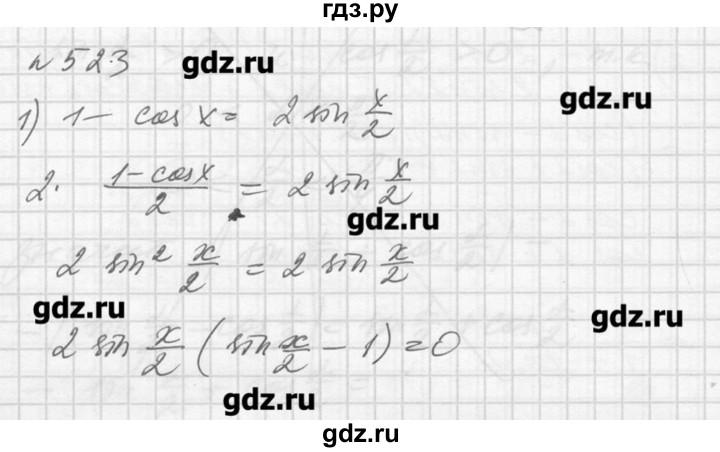 гдз.ру
№ 523 gdz.ru
gdz.ru
1) 1 - cos x = 2 sin x/2
2 · (1 - cos x)/2 = 2 sin x/2
gdz.ru
2 sin² x/2 = 2 sin x/2
gdz.ru
gdz.ru
2 sin x/2 (sin x/2 - 1) = 0
gdz.ru
gdz.ru